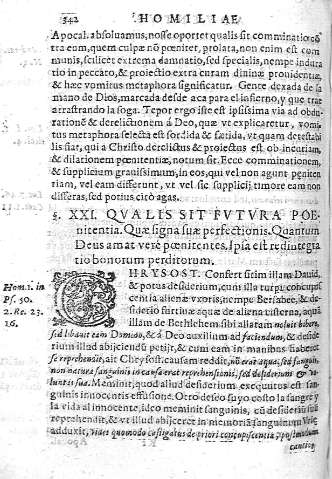 342 HOMILIAE
Apocal. absoluamus, nosse oportet qualis sit comminatio cō
tra eum, quem culpæ nō pœnitet, prolata, non enim est com
munis, scilicet extrema damnatio, sed specialis, nempe indura
tio in peccato, & proiectio extra curam diuinæ prouidentiæ,
& hæc vomitus metaphora significatur. Gente dexada de la
mano de Dios, marcada desde aca para el infierno, y que trae
arrastrando la soga. Tepor ergo iste est ipsissima via ad obdu-
rationē & derelictionem à Deo, quæ vt explicaretur, vomi-
tus metaphora selecta est sordida & fætida, vt quam detestabi
lis siat, qui a Christo derelictus & proiectus est ob incuriam,
& dilationem pœnitentiæ, notum sit. Ecce comminationem,
& supplicium grauissimum, in eos, qui vel non agunt pœniten
tiam, vel eam differunt, vt vel sic supplicij timore eam non
differas, sed potius citò agas.
§. XXI. QVALIS SIT FVTVRA POE-
nitentia. Quæ signa suæ perfectionis. Quantum
Deus amat verè pœnitentes. Ipsa est redintegra
tio bonorum perditorum.
Hom. 2. in
Ps. 50.
2. Re. 23.
16.
CHRYSOST. Confert sitim illam Dauid,
& potus desiderium, cum illa turpi concupis
centia alienæ vxoris, nempe Bersabee, & de-
siderio furtiuæ aquæ de aliena cisterna, aquā
illam de Bethlehem sibi allatam noluit bibere,
sed libauit eam Domino, & à Deo auxilium ad faciendum, & deside
rium illud abijciendū petijt, & cum eam in manibus haberet
se reprehendit, ait Chrysost. causam reddit, nō erat aqua, sed sanguis
non natura sanguinis in causa erat reprehensionis, sed desiderium & vo
luntatis suæ. Meminit, quod aliud desiderium exequutus est sangui-
nis innocentis effusione. Otro deseo suyo costo la sangre y
la vida al innocente, ideo meminit sanguinis, cū desideriū suū
reprehenderit, & vt illud abijceret in memoriā sanguinum Vriæ
adduxit, vides quomodo castigatus de priori concupiscentia, postmodum
cautior